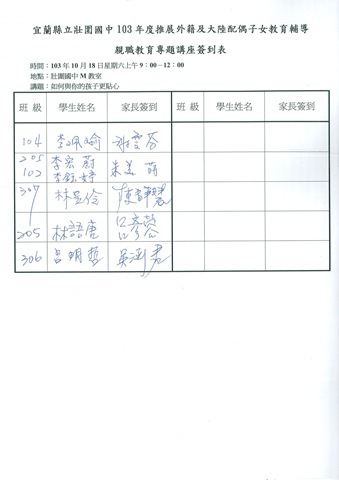 宜蘭縣立壯圍國中 103 年度推展外籍及大陸配偶子女教育輔導
親職教育專題講座簽到表
時間：103 年 10 月 18 日星期六上午 9：00－12：00
地點：壯圍國中 M 教室
講題：如何與你的孩子更貼心
班 級 學生姓名 家長簽到 班 級 學生姓名 家長簽到
104 李珮瑜
205 李宏蔚 朱美
102 李鈺婷
307 林昱伶 陳
205 林語唐
306 呂明哲 吳